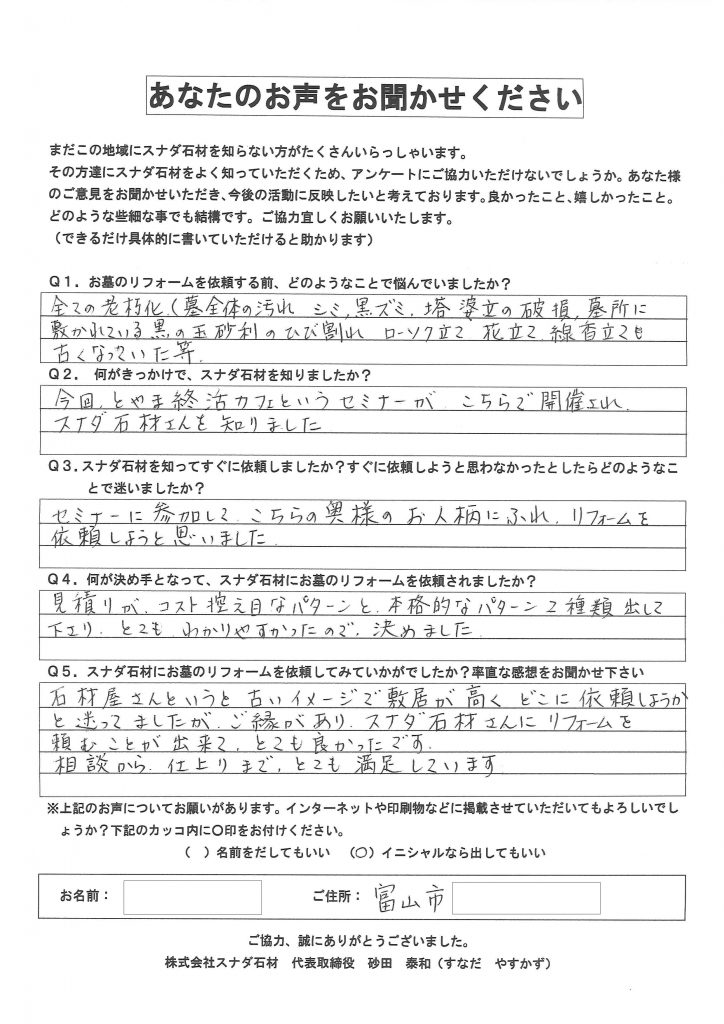 あなたのお声をお聞かせください
まだこの地域にスナダ石材を知らない方がたくさんいらっしゃいます。
その方達にスナダ石材をよく知っていただくため、アンケートにご協力いただけないでしょうか。あなた様
のご意見をお聞かせいただき、今後の活動に反映したいと考えております。良かったこと、嬉しかったこと。
どのような些細な事でも結構です。ご協力宜しくお願いいたします。
（できるだけ具体的に書いていただけると助かります）
Q1．お墓のリフォームを依頼する前、どのようなことで悩んでいましたか？
全ての老朽化、（墓全体の汚れ シミ，黒ズミ．塔婆立の破損，墓所に
敷かれている黒の玉砂利のひび割れ ローソク立て 花立て．線香立ても
古くなっていた等．
Q2． 何がきっかけで、スナダ石材を知りましたか？
今回，とやま終活カフェというセミナーが，こちらで開催され，
スナダ石材さんを知りました
Q3．スナダ石材を知ってすぐに依頼しましたか？すぐに依頼しようと思わなかったとしたらどのようなこ
とで迷いましたか？
セミナーに参加して，こちらの奥様のお人柄にふれ，リフォームを
依頼しようと思いました．
Q4．何が決め手となって、スナダ石材にお墓のリフォームを依頼されましたか？
見積りが，コスト控え目なパターンと，本格的なパターン2種類出して
下さり，とても わかりやすかったので，決めました．
Q5．スナダ石材にお墓のリフォームを依頼してみていかがでしたか？率直な感想をお聞かせ下さい
石材屋さんというと古いイメージで敷居が高く どこに依頼しようか
と迷ってましたが，ご縁があり．スナダ石材さんにリフォームを
頼むことが出来て，とても良かったです．
相談から．仕上りまで，とても満足しています
※上記のお声についてお願いがあります。インターネットや印刷物などに掲載させていただいてもよろしいでし
ょうか？下記のカッコ内に〇印をお付けください。
（　）名前をだしてもいい　（○）イニシャルなら出してもいい
お名前：　ご住所： 富山市
ご協力、誠にありがとうございました。
株式会社スナダ石材　代表取締役　砂田　泰和（すなだ　やすかず）